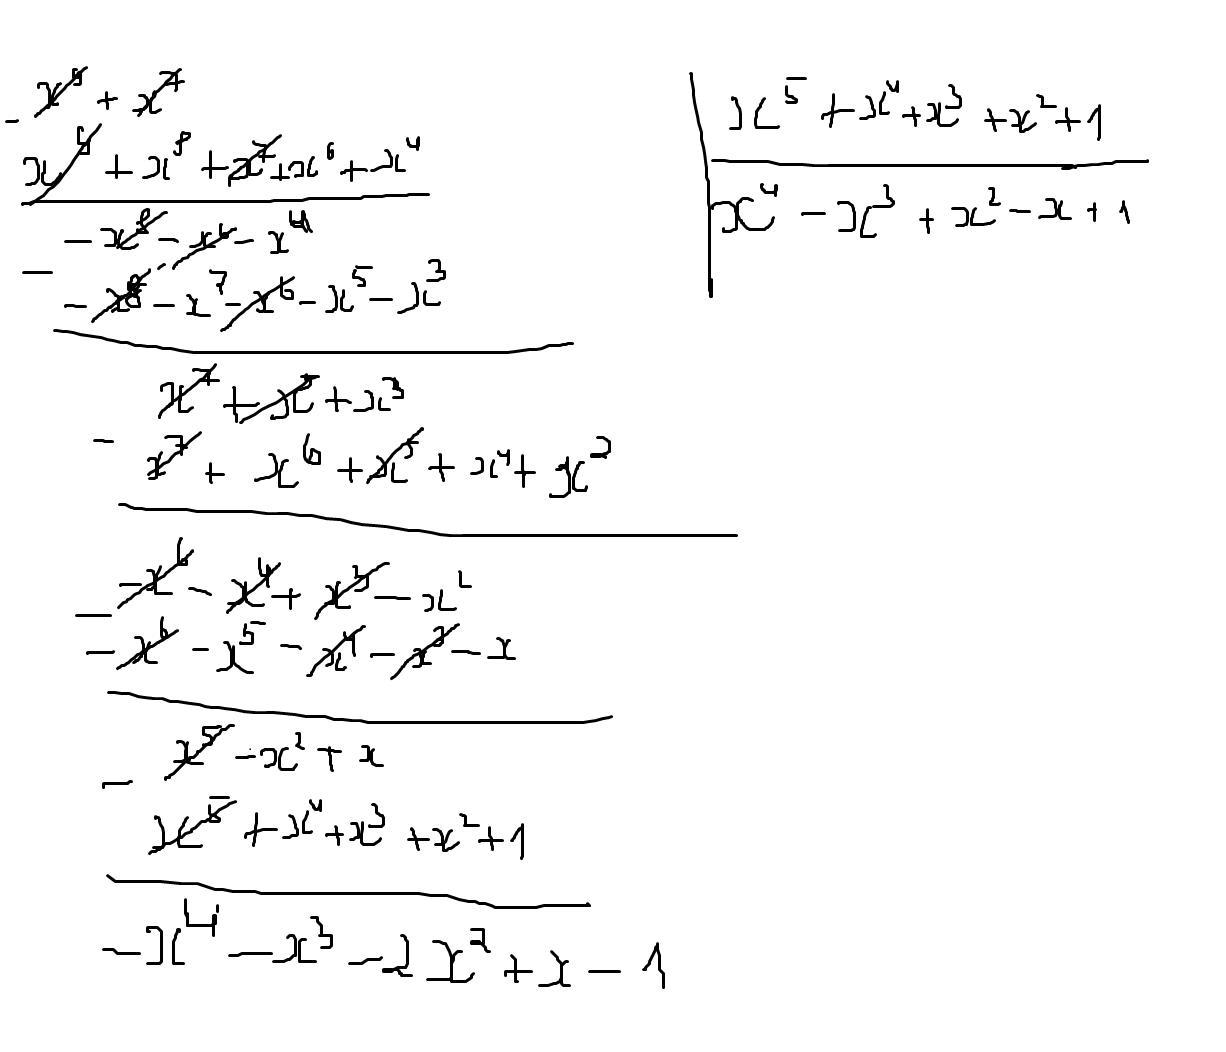 - x⁹ + x⁷
x⁹ + x⁸ + x⁷ + x⁶ + x⁴
- x⁸ - x⁶ - x⁴
-
- x⁸ - x⁷ - x⁶ - x⁵ - x³
x⁷ + x⁵ + x³
-
x⁷ + x⁶ + x⁵ + x⁴ + x²
- x⁶ - x⁴ + x³ - x²
-
- x⁶ - x⁵ - x⁴ - x³ - x
x⁵ - x² + x
-
x⁵ + x⁴ + x³ + x² + 1
- x⁴ - x³ - 2x² + x - 1
x⁵ + x⁴ + x³ + x² + 1
x⁴ - x³ + x² - x + 1